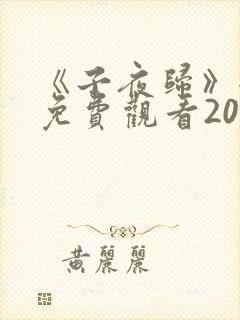 《子夜歸》
免費觀看20
黃麗麗